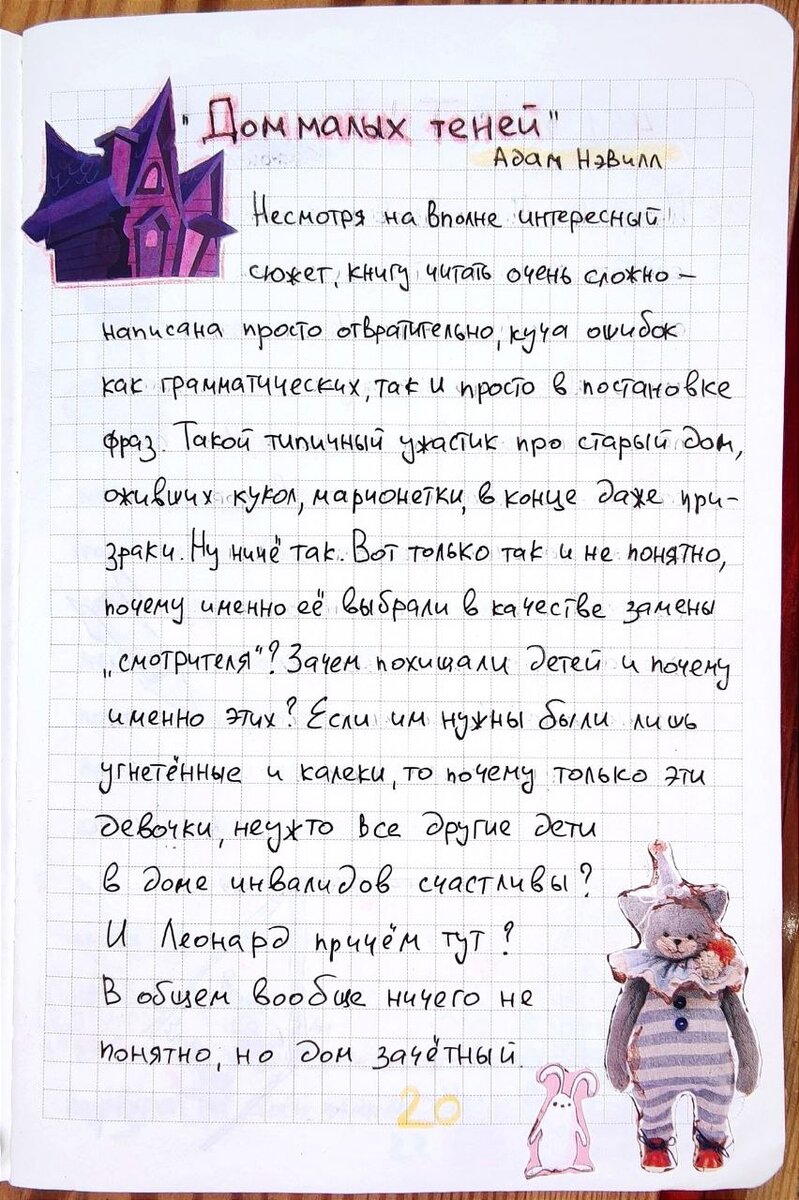 "Дом малых теней"
Адам Нэвилл
Несмотря на вполне интересный
сюжет, книгу читать очень сложно –
написана просто отвратительно, куча ошибок
как грамматических, так и просто в постановке
фраз. Такой типичный ужастик про старый дом,
оживших кукол, марионетки, в конце даже при-
зраки. Ну ничё так. Вот только так и не понятно,
почему именно её выбрали в качестве замены
„смотрителя"? Зачем похищали детей и почему
именно этих? Если им нужны были лишь
угнетённые и калеки, то почему только эти
девочки, неужто все другие дети
в доме инвалидов счастливы?
И Леонард причём тут?
В общем вообще ничего не
понятно, но дом зачётный.
20